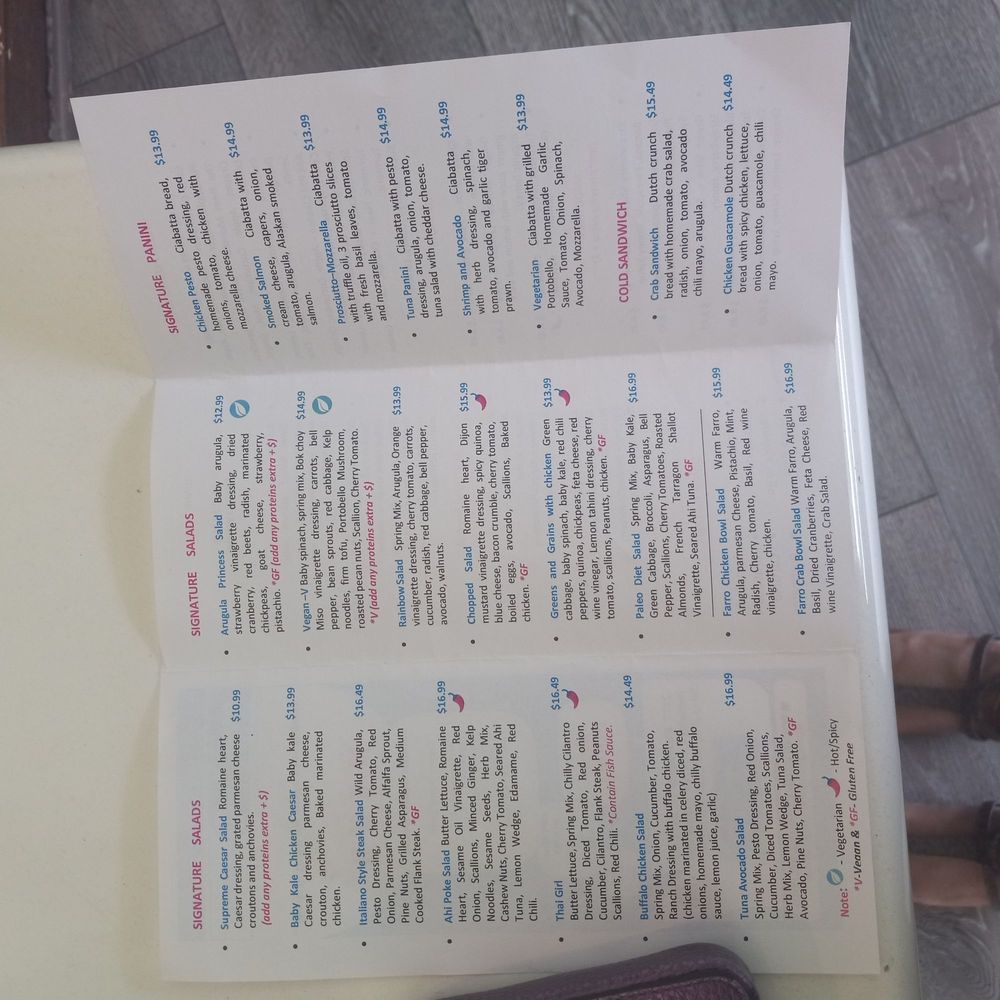 SIGNATURE SALADS
• Supreme Caesar Salad Romaine heart, $10.99
Caesar dressing, grated parmesan cheese
croutons and anchovies.
(add any proteins extra + $)
• Baby Kale Chicken Caesar Baby kale $13.99
Caesar dressing parmesan cheese,
crouton, anchovies, Baked marinated
chicken.
• Italiano Style Steak Salad Wild Arugula, $16.49
Pesto Dressing, Cherry Tomato, Red
Onion Parmesan Cheese, Alfalfa Sprout,
Pine Nuts, Grilled Asparagus, Medium
Cooked Flank Steak. *GF
• Ahi Poke Salad Butter Lettuce, Romaine $16.99
Heart, Sesame Oil Vinaigrette, Red
Onion, Scallions, Minced Ginger, Kelp
Noodles, Sesame Seeds, Herb Mix,
Cashew Nuts, Cherry Tomato, Seared Ahi
Tuna, Lemon Wedge, Edamame, Red
Chili.
• Thai Girl $16.49
Butter Lettuce, Spring Mix, Chilly Cilantro
Dressing, Diced Tomato, Red onion,
Cucumber, Cilantro, Flank Steak, Peanuts
Scallions, Red Chili. *Contain Fish Sauce.
• Buffalo Chicken Salad $14.49
Spring Mix, Onion, Cucumber, Tomato,
Ranch Dressing with buffalo chicken.
(chicken marinated in celery diced, red
onions, homemade mayo, chilly buffalo
sauce, lemon juice, garlic)
• Tuna Avocado Salad $16.99
Spring Mix, Pesto Dressing, Red Onion,
Cucumber, Diced Tomatoes, Scallions,
Herb Mix, Lemon Wedge, Tuna Salad,
Avocado, Pine Nuts, Cherry Tomato. *GF
Note: - Vegetarian - Hot/Spicy
*V-Vegan & *GF- Gluten Free
SIGNATURE SALADS
• Arugula Princess Salad Baby arugula, $12.99
strawberry vinaigrette dressing, dried
cranberry, red beets, radish, marinated
chickpeas, goat cheese, strawberry,
pistachio. *GF (add any proteins extra + $)
• Vegan–V Baby spinach, spring mix, Bok choy $14.99
Miso vinaigrette dressing, carrots, bell
pepper, bean sprouts, red cabbage, Kelp
noodles, firm tofu, Portobello Mushroom,
roasted pecan nuts, Scallion, Cherry Tomato.
*V (add any proteins extra + $)
• Rainbow Salad Spring Mix, Arugula, Orange $13.99
vinaigrette dressing, cherry tomato, carrots,
cucumber, radish, red cabbage, bell pepper,
avocado, walnuts.
• Chopped Salad Romaine heart, Dijon $15.99
mustard vinaigrette dressing, spicy quinoa,
blue cheese, bacon crumble, cherry tomato,
boiled eggs, avocado, Scallions, Baked
chicken. *GF
• Greens and Grains with chicken Green $13.99
cabbage, baby spinach, baby kale, red chili
peppers, quinoa, chickpeas, feta cheese, red
wine vinegar, Lemon tahini dressing, cherry
tomato, scallions, Peanuts, chicken. *GF
• Paleo Diet Salad Spring Mix, Baby Kale, $16.99
Green Cabbage, Broccoli, Asparagus, Bell
Pepper, Scallions, Cherry Tomatoes, Roasted
Almonds, French Tarragon Shallot
Vinaigrette, Seared Ahi Tuna. *GF
• Farro Chicken Bowl Salad Warm Farro, $15.99
Arugula, parmesan Cheese, Pistachio, Mint,
Radish, Cherry tomato, Basil, Red wine
vinaigrette, chicken.
• Farro Crab Bowl Salad Warm Farro, Arugula, $16.99
Basil, Dried Cranberries, Feta Cheese, Red
wine Vinaigrette, Crab Salad.
SIGNATURE PANINI
• Chicken Pesto Ciabatta bread, $13.99
homemade pesto dressing, red
onions, tomato, chicken with
mozzarella cheese.
• Smoked Salmon Ciabatta with $14.99
cream cheese, capers, onion,
tomato, arugula, Alaskan smoked
salmon.
• Prosciutto–Mozzarella Ciabatta $13.99
with truffle oil, 3 prosciutto slices
with fresh basil leaves, tomato
and mozzarella.
• Tuna Panini Ciabatta with pesto $14.99
dressing, arugula, onion, tomato,
tuna salad with cheddar cheese.
• Shrimp and Avocado Ciabatta $14.99
with herb dressing, spinach,
tomato, avocado and garlic tiger
prawn.
• Vegetarian Ciabatta with grilled $13.99
Portobello, Homemade Garlic
Sauce, Tomato, Onion, Spinach,
Avocado, Mozzarella.
COLD SANDWICH
• Crab Sandwich Dutch crunch $15.49
bread with homemade crab salad,
radish, onion, tomato, avocado
chili mayo, arugula.
• Chicken Guacamole Dutch crunch $14.49
bread with spicy chicken, lettuce,
onion, tomato, guacamole, chili
mayo.